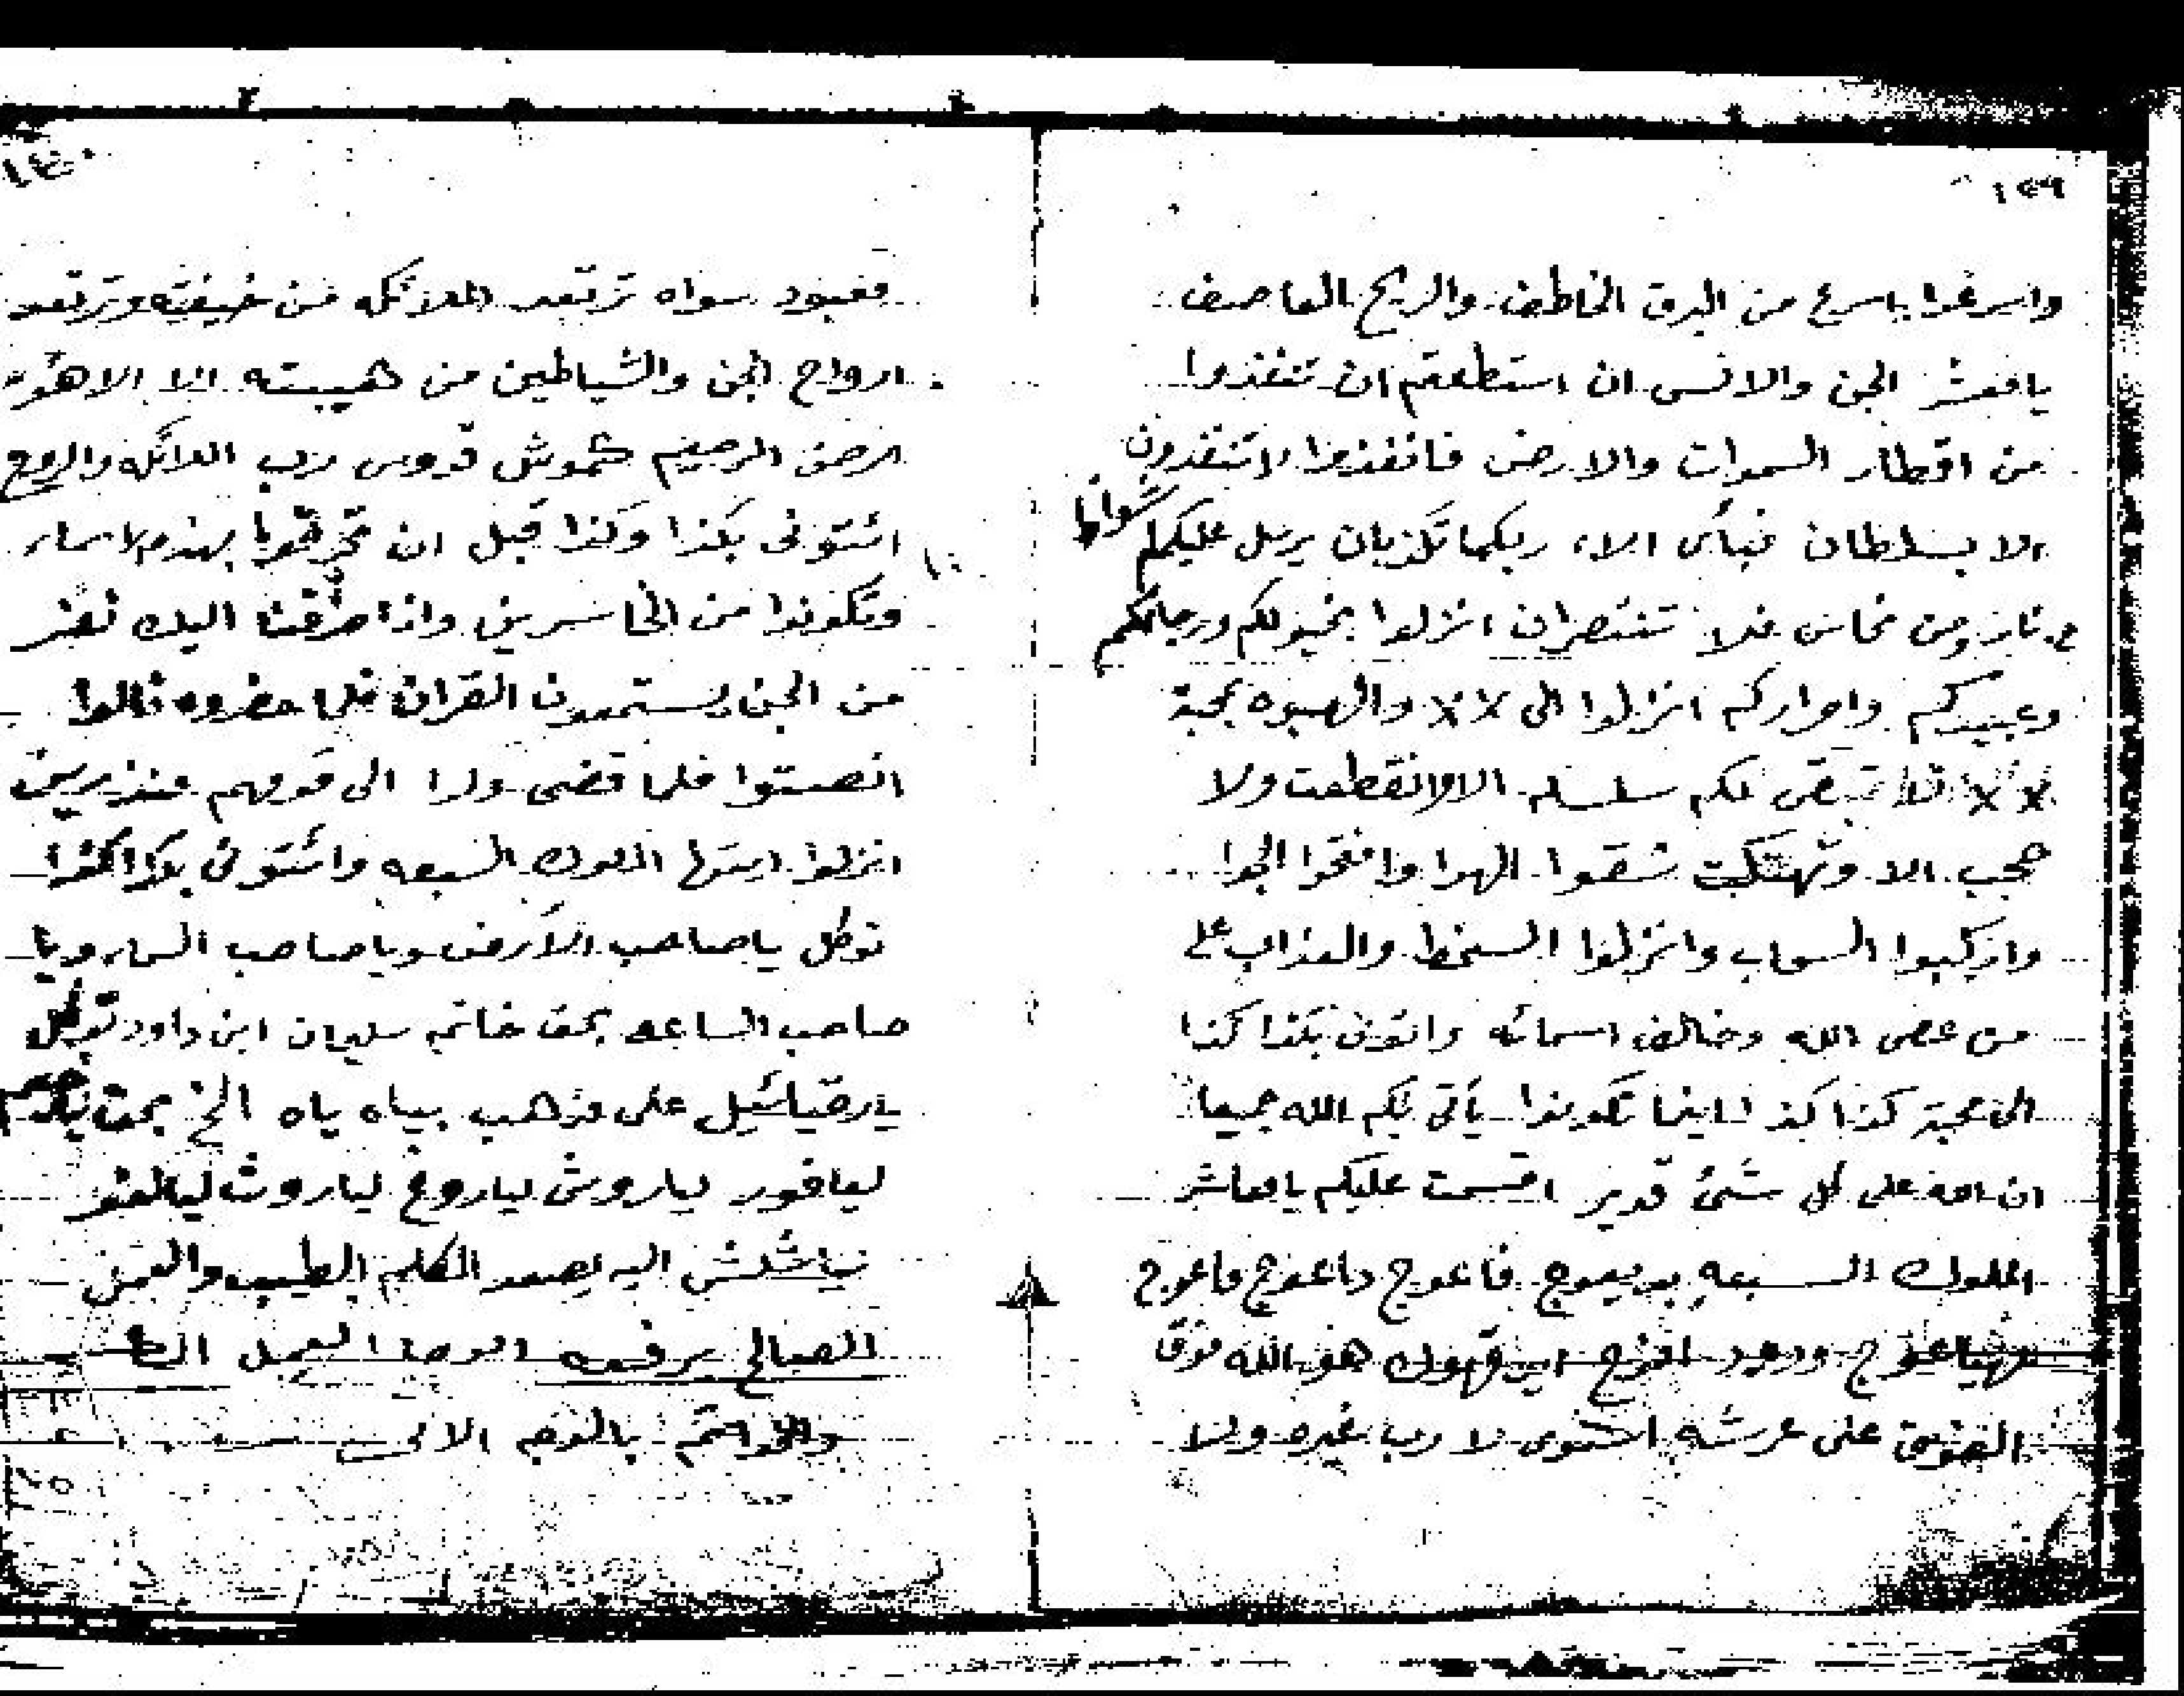 ١٣٩
واسرعوا باسرع من البرق الخاطف والريح العاصف
يا معشر الجن والانس ان استطعتم ان تنفذوا
من اقطار السموات والارض فانفذوا لا تنفذون
الا بسلطان فبأى الاء ربكما تكذبان يرسل عليكما شواظ
من نار ومن نحاس فلا تنتصران انزلوا بخيولكم ورجالكم
وعبيدكم واحراركم انزلوا الى لا لا والهبوه بمحبة
لا لا فلا تبقى لكم سلسله الا وانقطعت ولا
حجب الا وتهتكت شقوا الهوا وافتحوا الجوا
واركبوا السحاب وانزلوا السخط والعذاب على
من عصى الله وخالف اسمائه واتونى بكذا كذا
الى محبة كذا كذا اينما تكونوا يأتى بكم الله جميعا
ان الله على كل شئ قدير اقسمت عليكم يا معاشر
الملوك السبعه فاعوج داعوج فاعوج
هو الله فوق
الفوق على عرشه استوى لا رب غيره ولا
١٤٠
معبود سواه ترتعد الملائكه من خيفته وترتعد
ارواح الجن والشياطين من هيبته الا الا هو
الرحمن الرحيم كموش قدوس رب الملائكه والروح
ائتونى بكذا وكذا قبل ان تحرقوا بهذه الاسماء
وتكونوا من الخاسرين واذا صرفنا اليك نفر
من الجن يستمعون القران فلما حضروه قالوا
انصتوا فلما قضى ولوا الى قومهم منذرين
انزلوا ايتها الملوك السبعه وائتونى بكذا كذا
توكل يا صاحب الارض ويا صاحب السماء ويا
صاحب الساعه بحق خاتم سليمان ابن داود توكل
يا رقيائيل على مذهب بياه ياه الخ بحق
لياروش لياروغ لياروث
اليه يصعد الكلم الطيب والعمل
الصالح يرفعه الوحا العجل